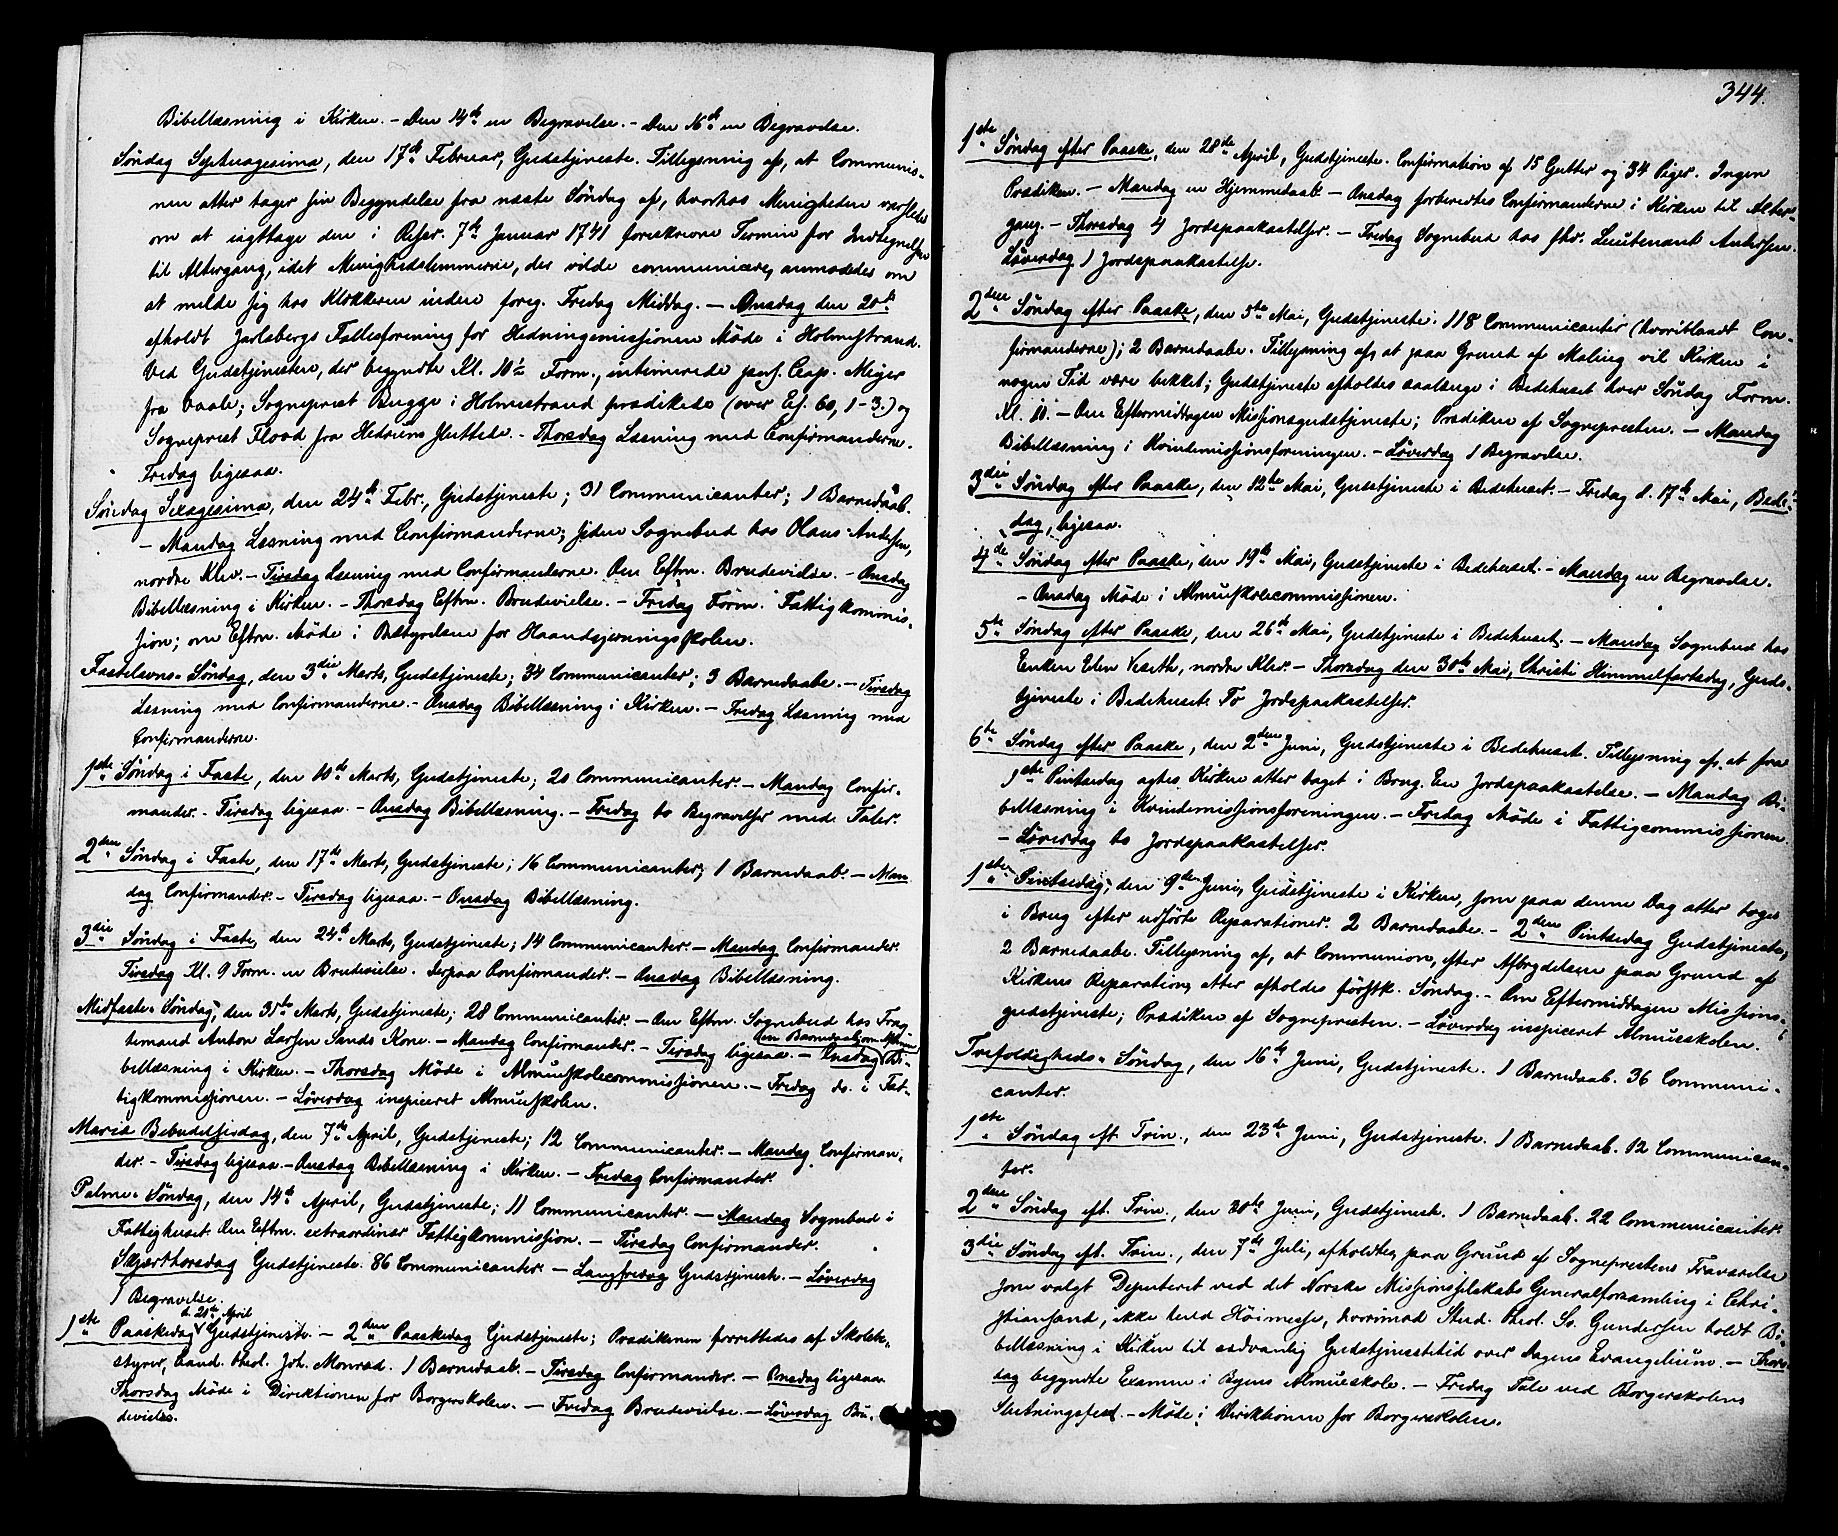 Bibellæsning i Kirken. – Den 14de en Begravelse. – Den 16de en Begravelse.
Søndag Septuagesima, den 17de Februar, Gudstjeneste. Tillysning af, at Communio-
nen atter tager sin Begyndelse fra næste Søndag af, hvorhos Menigheden
om at iagttage den i Rescr. 7de Januar 1741 foreskrevne Termin for Indtegnelsen
til Altergang, idet Menighedslemmerne, der vilde communicere, anmodedes om
at melde sig hos Klokkeren inden foreg. Fredag Middag. – Onsdag den 20de
afholdt Jarlsbergs Fællesforening for Hedningemissionen Møde i Holmestrand.
Ved Gudstjenesten, der begyndte Kl. 10½ Form., intimerede pers. Cap. Meyer
fra Vaale; Sogneprest Bugge i Holmestrand prædikede (over Es. 60, 1-3.) og
Sogneprest Flood fra Hedrum sluttede. – Thorsdag Læsning med Confirmanderne.
Fredag ligesaa.
Søndag Sexagesima, den 24de Febr., Gudstjeneste; 31 Communicanter; 1 Barnedaab.
– Mandag Læsning med Confirmanderne; siden Sognebud hos Olaus Andersen,
nordre Klev. – Tirsdag Læsning med Confirmanterne. Om Eftm. Brudevielse. – Onsdag
Bibellæsning i Kirken. – Thorsdag Eftm. Brudevielse. – Fredag Form. Fattigkommis-
sion; om Eftm. Møde i Bestyrelsen for Haandgjerningsskolen.
Fastelavns-Søndag, den 3die Marts, Gudstjeneste; 34 Communicanter; 3 Barnedaabe. – Tirsdag
Læsning med Confirmanderne. – Onsdag Bibellæsning i Kirken. – Fredag Læsning med
Confirmanderne.
1ste Søndag i Faste, den 10de Marts, Gudstjeneste; 20 Communicanter. – Mandag Confir-
mander. – Tirsdag ligesaa. – Onsdag Bibellæsning. – Fredag to Begravelser med Taler.
2den Søndag i Faste, den 17de Marts, Gudstjeneste; 16 Communicanter; 1 Barnedaab. – Man-
dag Confirmander. – Tirsdag ligesaa. – Onsdag Bibellæsning.
3die Søndag i Faste, den 24de Marts, Gudstjeneste; 14 Communicanter. – Mandag Confirmander.
Tirsdag Kl. 9 Form. en Brudevielse. derpaa Confirmander. – Onsdag Bibellæsning.
Midfaste-Søndag, den 31te Marts, Gudstjeneste; 28 Communicanter. – Om Eftm. Sognebud hos Frag-
temand Anton Larsen Sands Kone. – Mandag Confirmander. – Tirsdag ligesaa. – Onsdag Bi-
bellæsning i Kirken. – Thorsdag Møde i Almueskolecommissionen. – Fredag do. i Fat-
tigkommissionen. – Løverdag inspiceret Almueskolen.
Mariæ Bebudelsesdag, den 7de April, Gudstjeneste; 12 Communicanter. – Mandag Confirman-
der. – Tirsdag ligesaa. – Onsdag Bibellæsning i Kirken. – Fredag Confirmander.
Palme-Søndag, den 14de April, Gudstjeneste; 11 Communicanter. – Mandag Sognebud i
Fattighuset. Om Eftm. extraordinær Fattigkommission. – Tirsdag Confirmander.
Skjærthorsdag Gudstjeneste. 86 Communicanter. – Langfredag Gudstjeneste. – Løverdag
1 Begravelse.
1ste Paaskedag d. 21de April Gudstjeneste. – 2den Paaskedag Gudstjeneste; Prædikenen forrettedes af Skolebe-
styrer, Cand. theol. Joh. Monrad. 1 Barnedaab. – Tirsdag Confirmander. – Onsdag ligesaa.
Thorsdag Møde i Direktionen for Borgerskolen. – Fredag Brudevielse. – Løverdag Bru-
devielse.
344.
1ste Søndag efter Paaske, den 28de April, Gudstjeneste. Confirmation af 15 Gutter og 34 Piger. Ingen
Prædiken. – Mandag en Hjemmedaab. – Onsdag forberedtes Confirmanderne i Kirken til Alter-
gang. – Thorsdag 4 Jordspaakastelser. – Fredag Sognebud hos fhv. Lieutenant Andersen.
Løverdag 1 Jordspaakastelse.
2den Søndag efter Paaske, den 5te Mai, Gudstjeneste. 118 Communicanter (hvoriblandt Con-
firmanderne); 2 Barnedaabe. Tillysning af, at paa Grund af Maling vil Kirken i
nogen Tid være lukket; Gudstjeneste afholdes saalænge i Bedehuset hver Søndag Form.
Kl. 10. – Om Eftermiddagen Missionsgudstjeneste; Prædiken af Sognepresten. – Mandag
Bibellæsning i Kvindemissionsforeningen. – Løverdag 1 Begravelse.
3die Søndag efter Paaske, den 12te Mai, Gudstjeneste i Bedehuset. – Fredag d. 17de Mai, Bede-
dag, ligesaa.
4de Søndag efter Paaske, den 19de Mai, Gudstjeneste i Bedehuset. – Mandag en Begravelse.
– Onsdag Møde i Almueskolecommissionen.
5te Søndag efter Paaske, den 26de Mai, Gudstjeneste i Bedehuset. – Mandag Sognebud hos
Enken Elen Veseth, nordre Klev. – Thorsdag den 30te Mai, Christi Himmelfartsdag, Guds-
tjeneste i Bedehuset. To Jordspaakastelser.
6te Søndag efter Paaske, den 2den Juni, Gudstjeneste i Bedehuset. Tillysning af, at fra
1ste Pintsedag agtes Kirken atter taget i Brug. En Jordspaakastelse. – Mandag Bi-
bellæsning i Kvindemissionsforeningen. – Fredag Møde i Fattigcommissionen
– Løverdag to Jordspaakastelser.
1ste Pintsedag, den 9de Juni, Gudstjeneste i Kirken, som paa denne Dag atter toges
i Brug efter udførte Reparationer. 2 Barnedaabe. – 2den Pintsedag Gudstjeneste,
2 Barnedaabe. Tillysning af, at Communion, efter Afbrydelsen paa Grund af
Kirkens Reparation, atter afholdes førstk. Søndag. – Om Eftermiddagen Missions-
gudstjeneste; Prædiken af Sognepresten. – Løverdag inspiceret Almueskolen.
Trefoldigheds-Søndag, den 16de Juni, Gudstjeneste. 1 Barnedaab. 36 Communi-
canter.
1ste Søndag eft. Trin., den 23de Juni, Gudstjeneste. 1 Barnedaab. 12 Communican-
ter.
2den Søndag eft. Trin., den 30te Juni, Gudstjeneste. 1 Barnedaab. 22 Communicanter.
3die Søndag eft. Trin., den 7de Juli, afholdtes, paa Grund af Sognepresten Fraværelse
som valgt Deputeret ved det Norske Missionsselskabs Generalforsamling i Chri-
stiansand, ikke heller Høimesse, hvorimod Stud. theol. Gundersen holdt Bi-
bellæsning i Kirken til sædvanlig Gudstjenestetid over Dagens Evangelium. – Thors-
dag begyndte Examen i Byens Almueskole. – Fredag Tale ved Borgerskolens
Slutningsfest. – Møde i Direktionen for Borgerskolen.